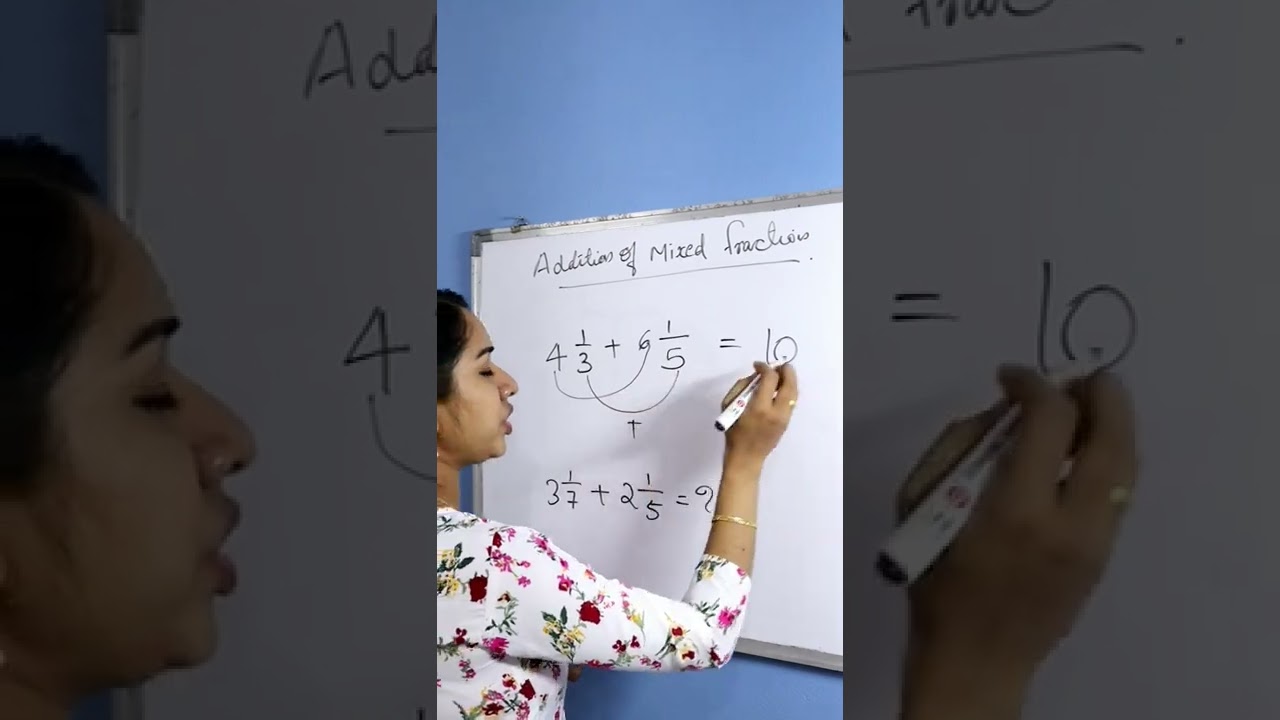 Addition of Mixed fractions.
4 1/3 + 6 1/5 = 10
+
3 1/7 + 2 1/5 = ?